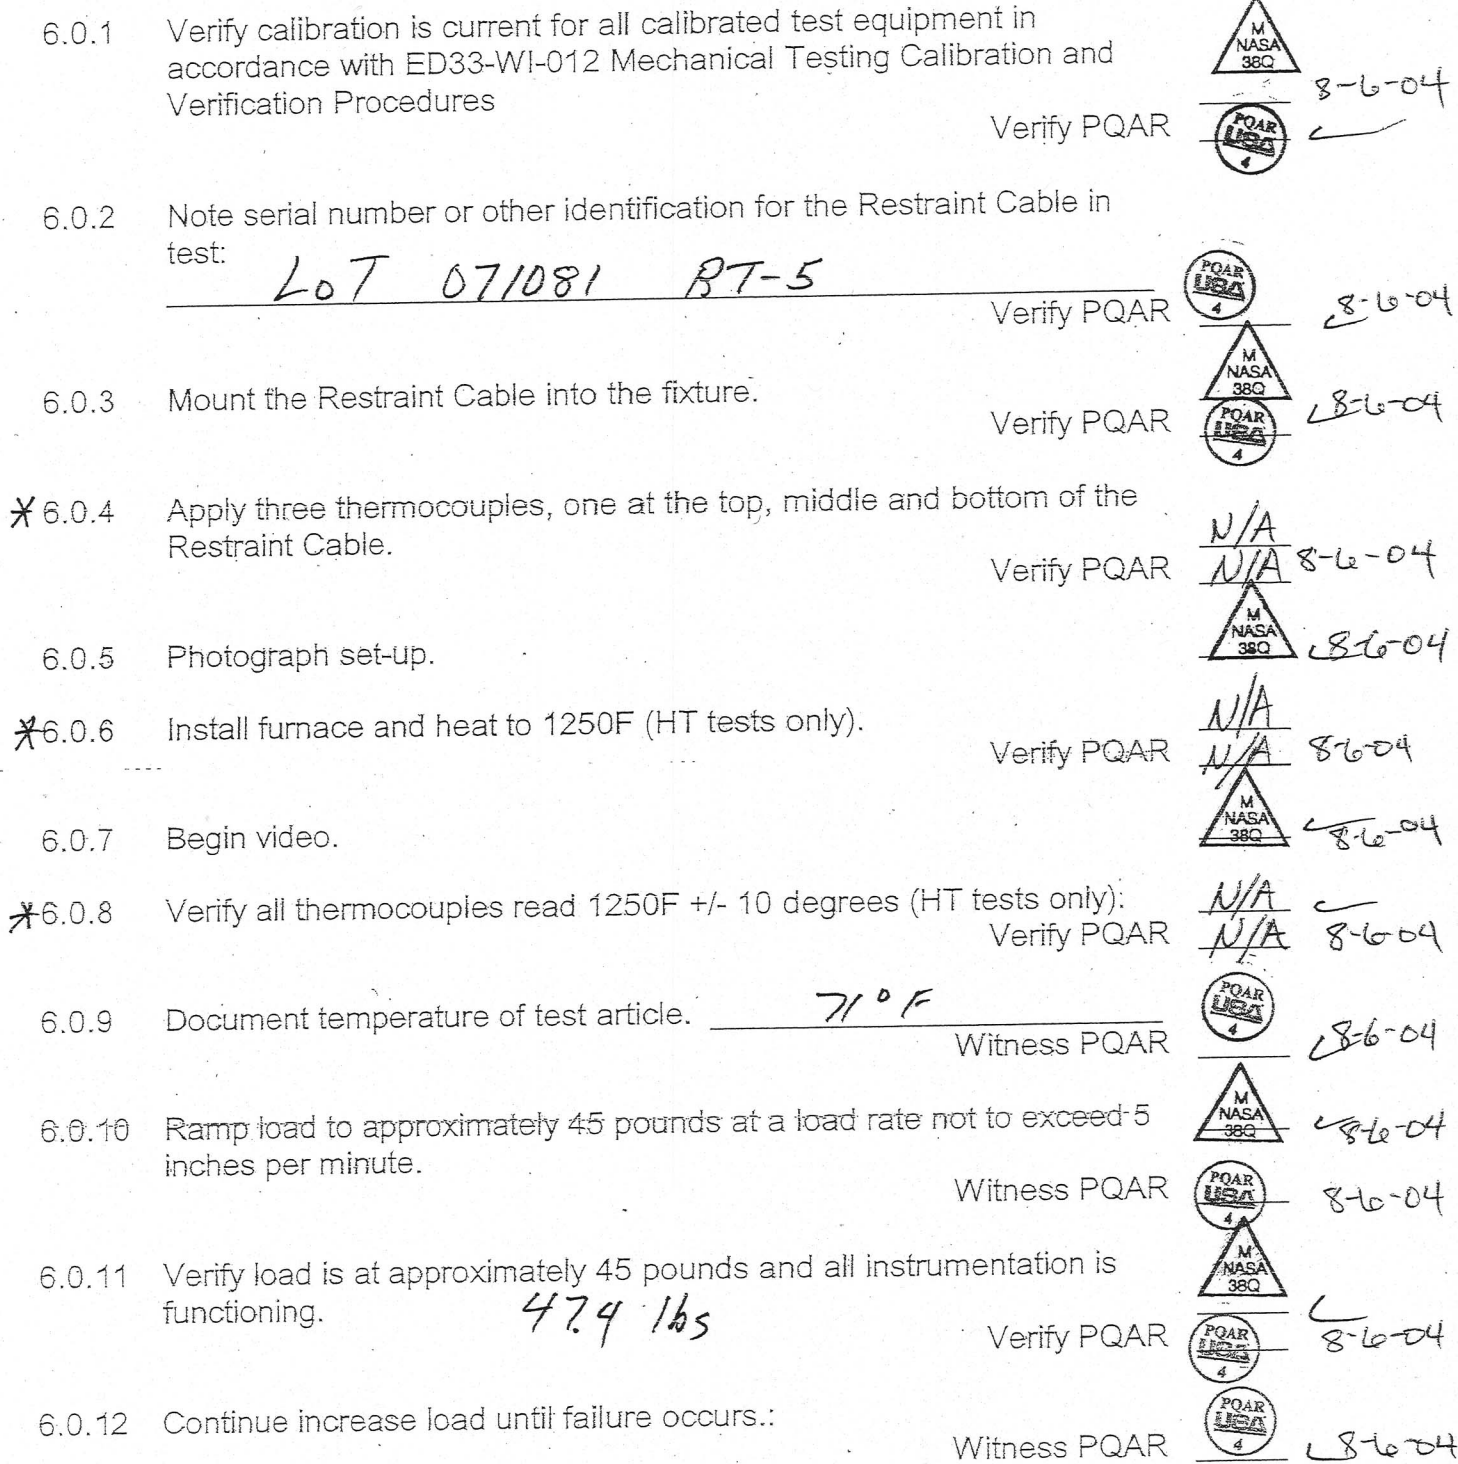 M
NASA
38Q
6.0.1 Verify calibration is current for all calibrated test equipment in
accordance with ED33-WI-012 Mechanical Testing Calibration and
Verification Procedures
8-6-04
Verify PQAR PQAR USA 4
6.0.2 Note serial number or other identification for the Restraint Cable in
test:
LOT 071081 RT-5
Verify PQAR PQAR USA 4 8-6-04
M
NASA
38Q
6.0.3 Mount the Restraint Cable into the fixture.
8-6-04
Verify PQAR PQAR USA 4
* 6.0.4 Apply three thermocouples, one at the top, middle and bottom of the
Restraint Cable. N/A
Verify PQAR N/A 8-6-04
M
NASA
38Q
6.0.5 Photograph set-up. 8-6-04
*6.0.6 Install furnace and heat to 1250F (HT tests only). N/A
Verify PQAR N/A 8-6-04
M
NASA
38Q
6.0.7 Begin video. 8-6-04
*6.0.8 Verify all thermocouples read 1250F +/- 10 degrees (HT tests only): N/A
Verify PQAR N/A 8-6-04
6.0.9 Document temperature of test article. 71°F PQAR USA 4
Witness PQAR 8-6-04
M
NASA
38Q
6.0.10 Ramp load to approximately 45 pounds at a load rate not to exceed 5 8-6-04
inches per minute.
Witness PQAR PQAR USA 4 8-6-04
M
NASA
38Q
6.0.11 Verify load is at approximately 45 pounds and all instrumentation is
functioning. 47.4 lbs
Verify PQAR PQAR USA 4 8-6-04
6.0.12 Continue increase load until failure occurs.: PQAR USA 4
Witness PQAR 8-6-04